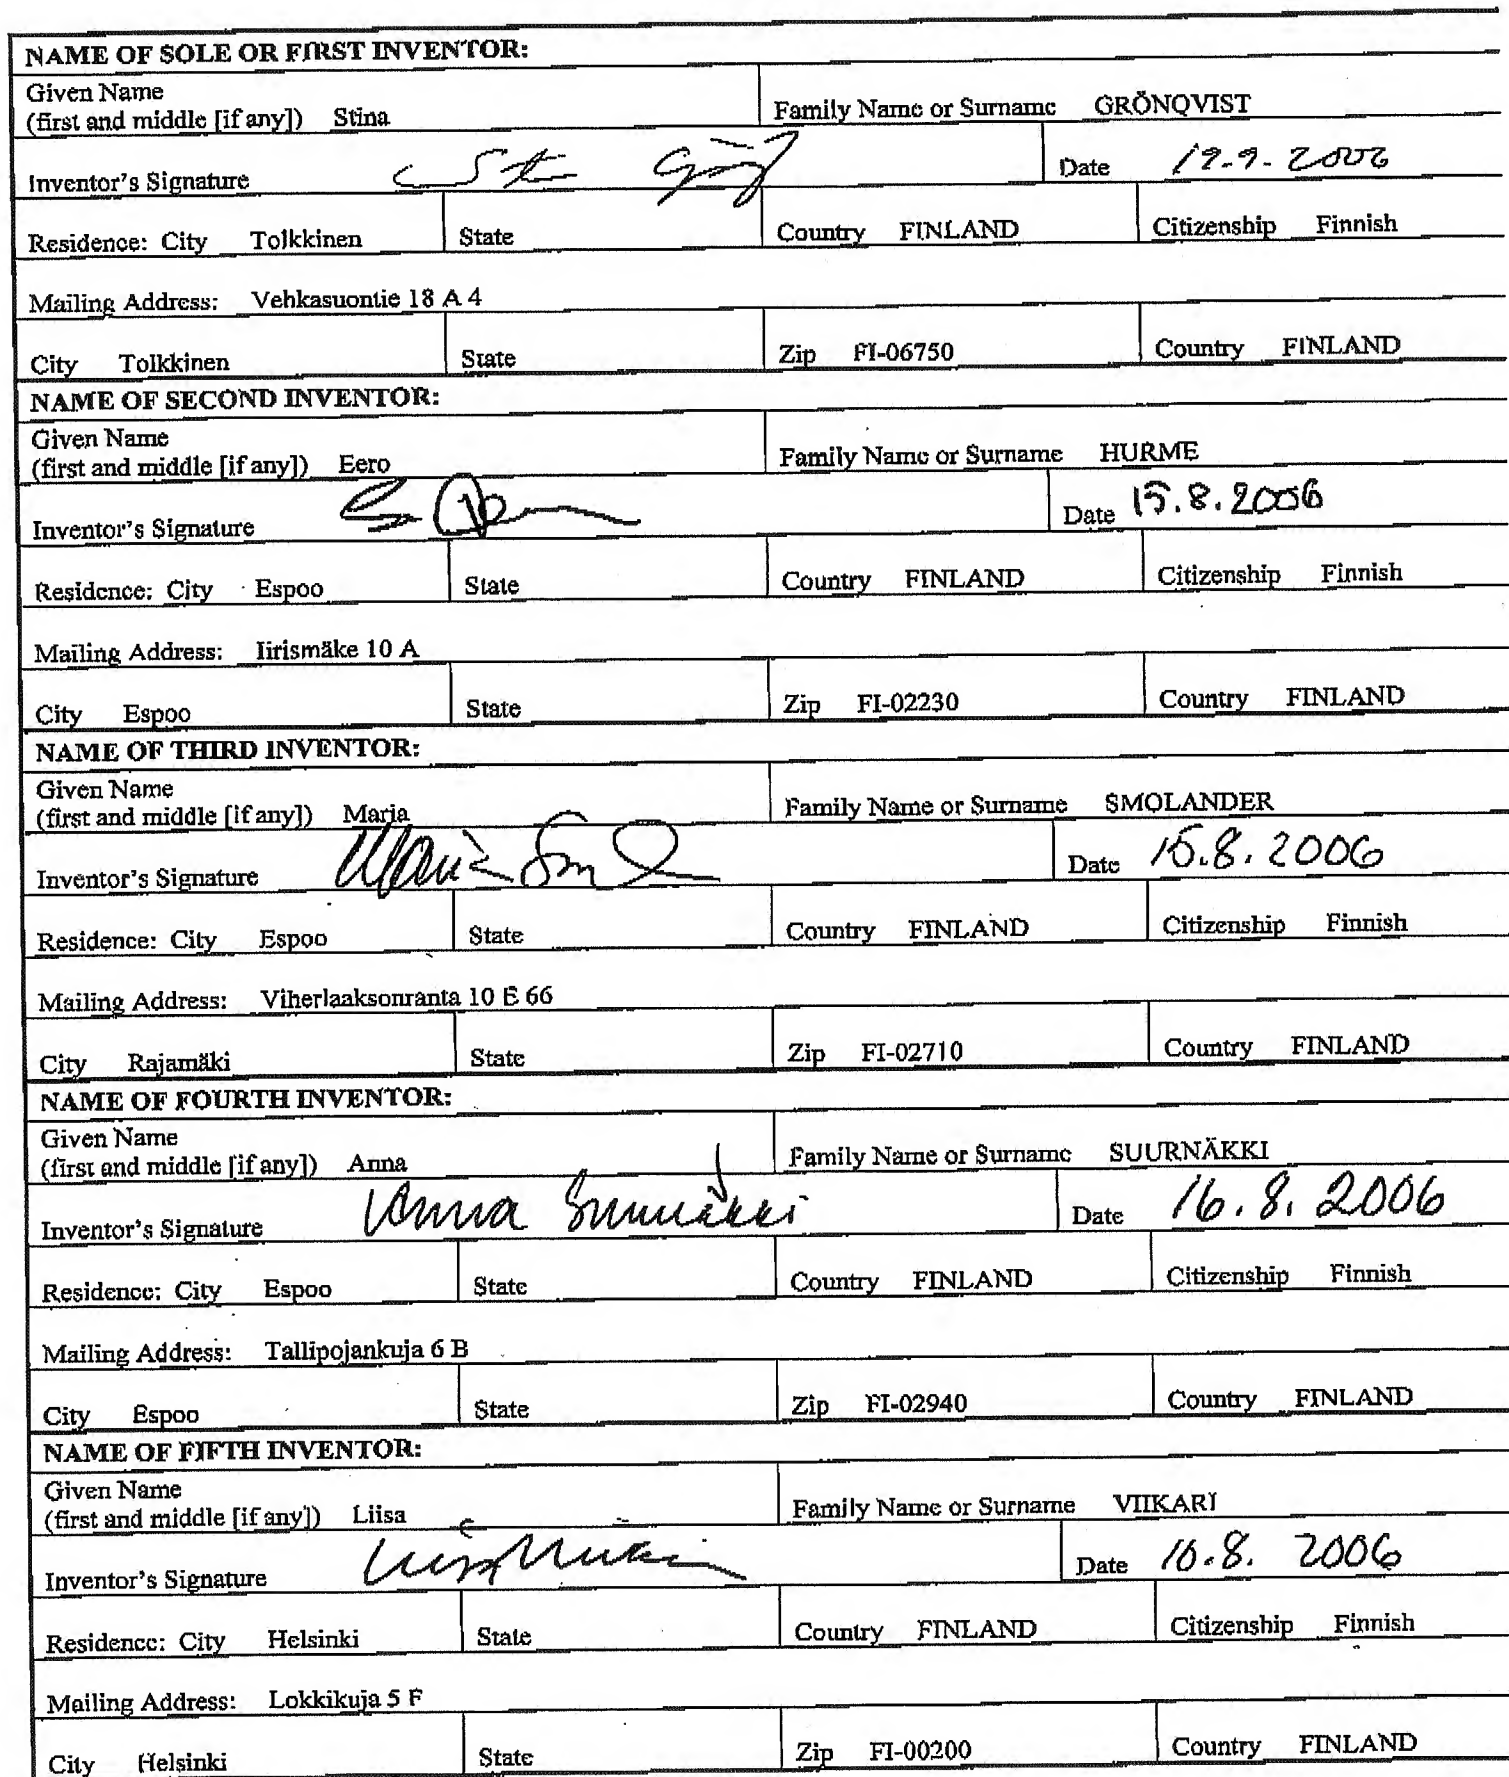 NAME OF SOLE OR FIRST INVENTOR:
Given Name
(first and middle [if any]) Stina Family Name or Surname GRÖNQVIST
Inventor's Signature Date
Residence: City Tolkkinen State Country FINLAND Citizenship Finnish
Mailing Address: Vehkasuontie 18 A 4
City Tolkkinen State Zip FI-06750 Country FINLAND
NAME OF SECOND INVENTOR:
Given Name
(first and middle [if any]) Eero Family Name or Surname HURME
Inventor's Signature Date 15.8.2006
Residence: City Espoo State Country FINLAND Citizenship Finnish
Mailing Address: Iirismäke 10 A
City Espoo State Zip FI-02230 Country FINLAND
NAME OF THIRD INVENTOR:
Given Name
(first and middle [if any]) Maria Family Name or Surname SMOLANDER
Inventor's Signature Date 15.8.2006
Residence: City Espoo State Country FINLAND Citizenship Finnish
Mailing Address: Viherlaaksonranta 10 E 66
City Rajamäki State Zip FI-02710 Country FINLAND
NAME OF FOURTH INVENTOR:
Given Name
(first and middle [if any]) Anna Family Name or Surname SUURNÄKKI
Inventor's Signature Anna Suurnäkki Date 16.8.2006
Residence: City Espoo State Country FINLAND Citizenship Finnish
Mailing Address: Tallipojankuja 6 B
City Espoo State Zip FI-02940 Country FINLAND
NAME OF FIFTH INVENTOR:
Given Name
(first and middle [if any]) Liisa Family Name or Surname VIIKARI
Inventor's Signature Date 10.8. 2006
Residence: City Helsinki State Country FINLAND Citizenship Finnish
Mailing Address: Lokkikuja 5 F
City Helsinki State Zip FI-00200 Country FINLAND